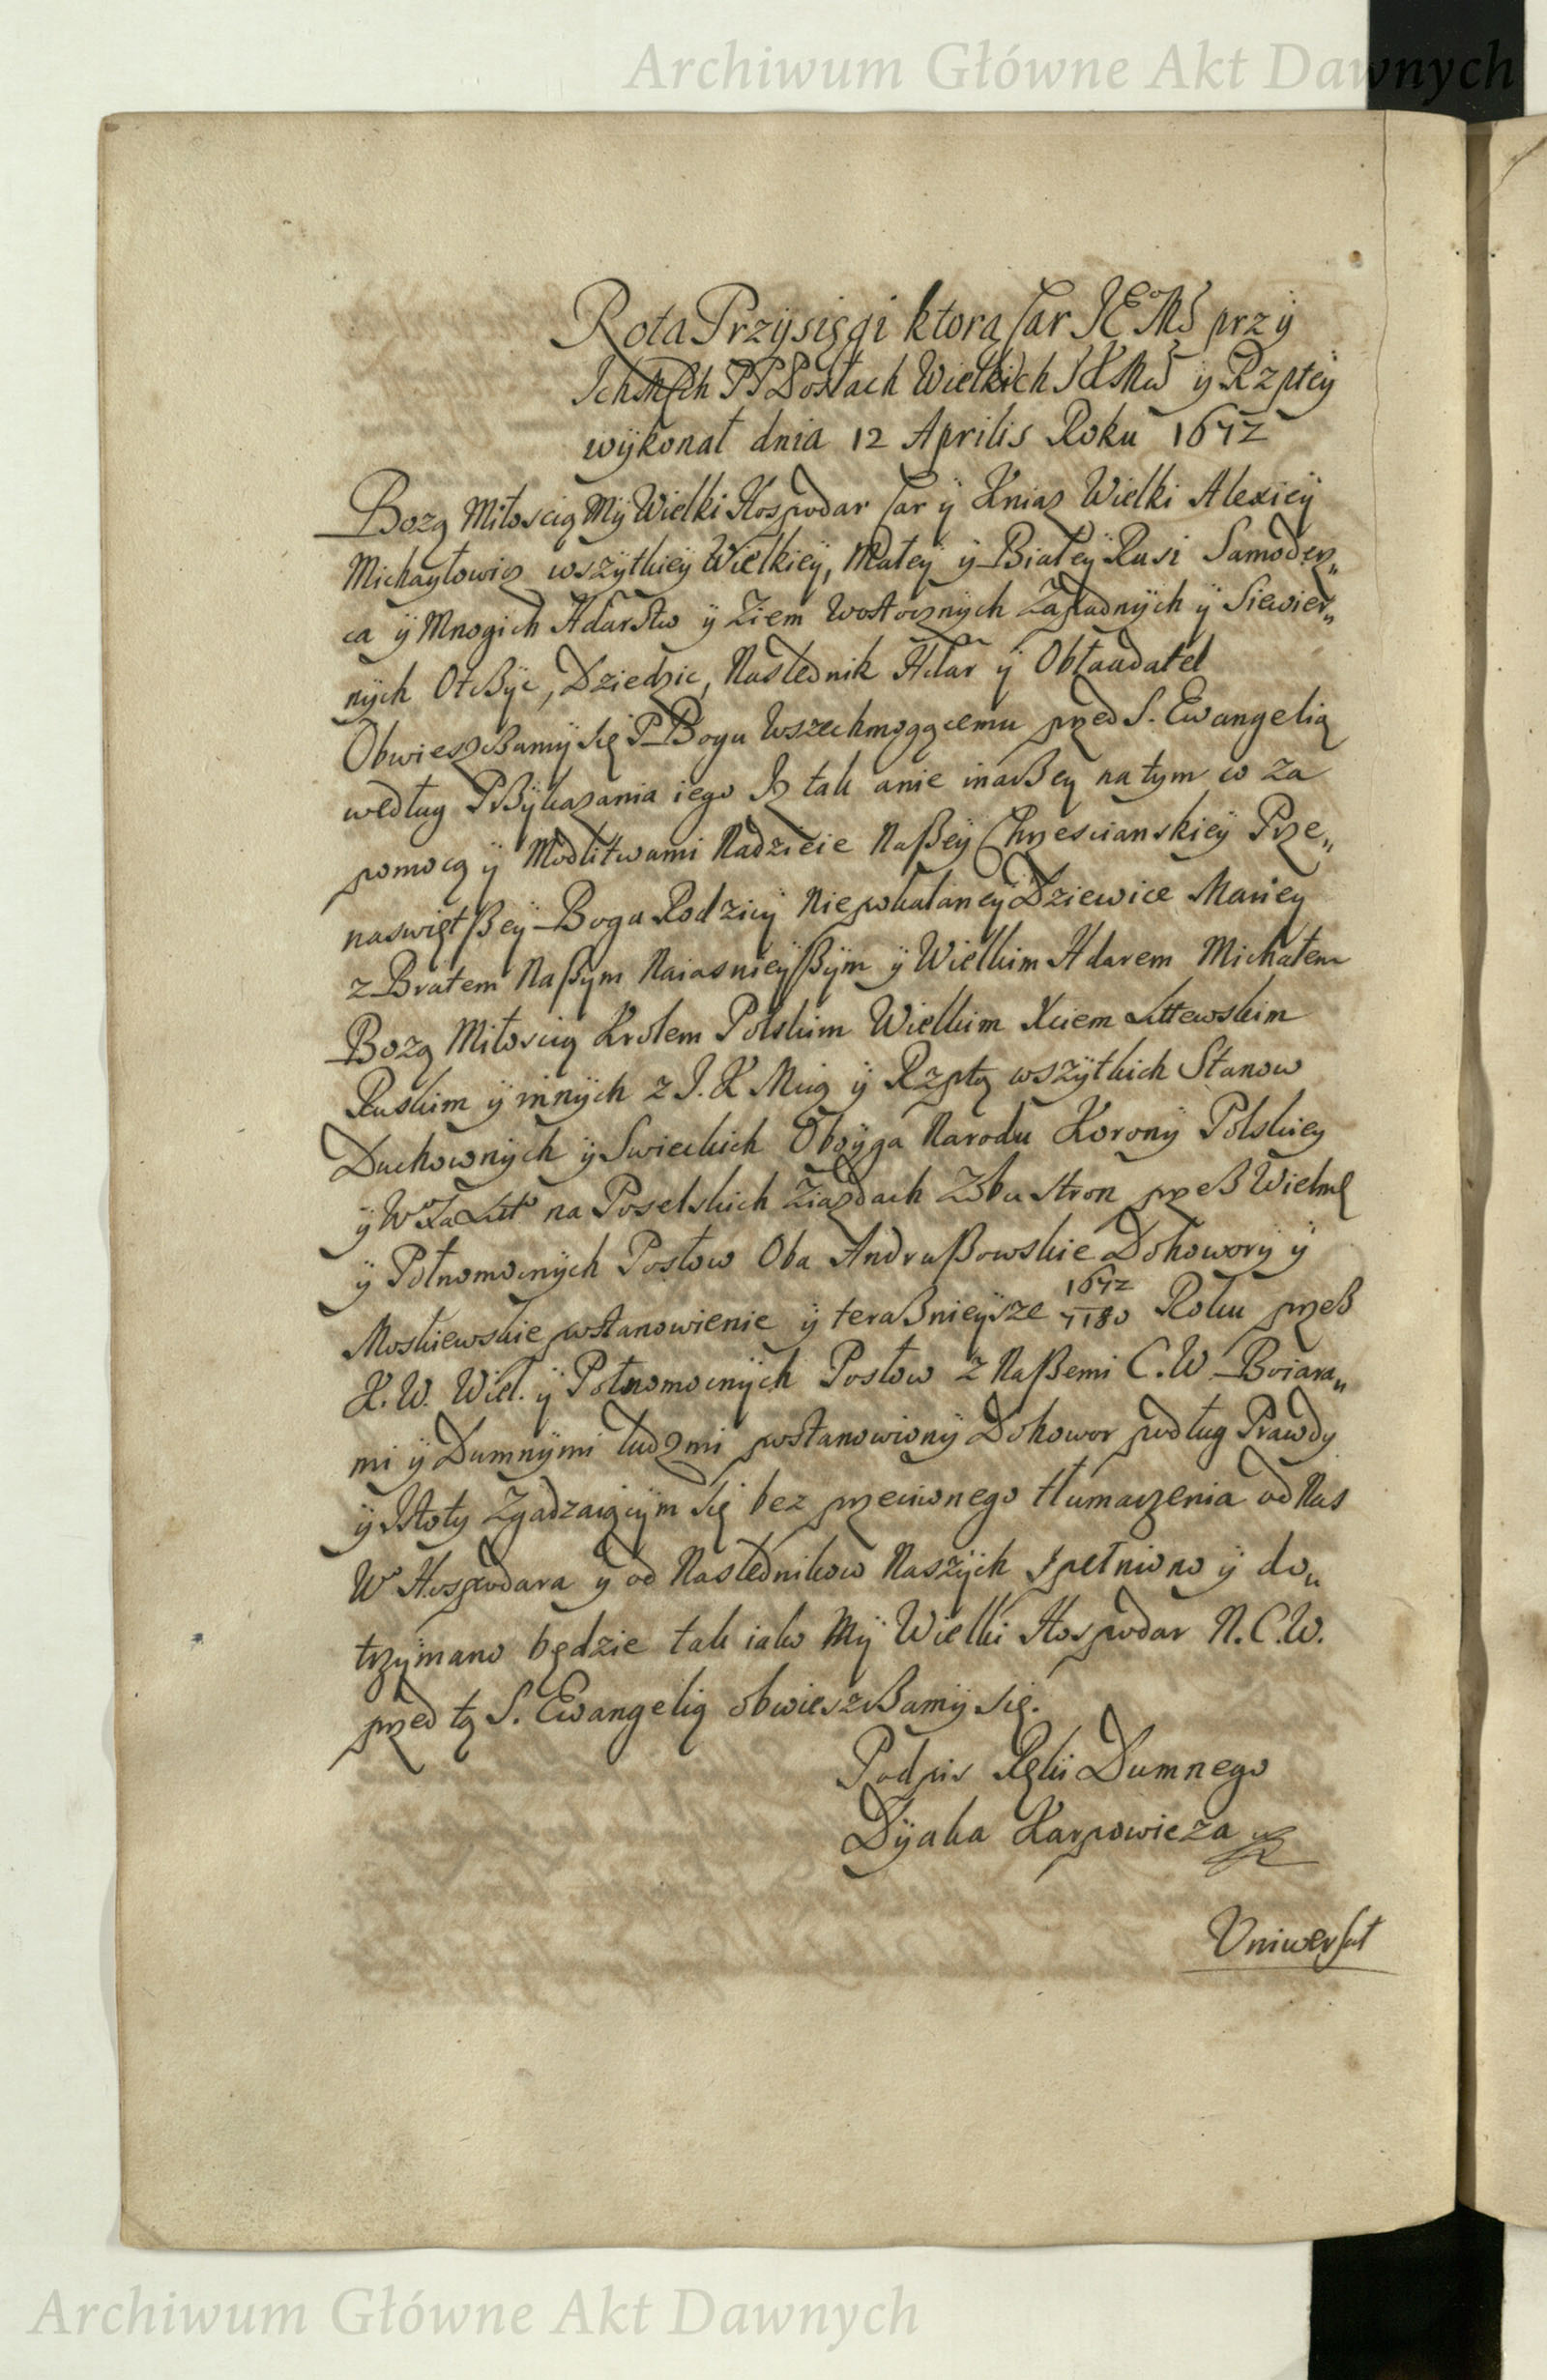 Archiwum Główne Akt Dawnych
Rota Przÿsięgi ktorą Car JEᵒMś przÿ
Ichmsch PP Posłach Wielkich JKMśći ÿ Rzptey
wÿkonał dnia 12 Aprilis Roku 1672
Bozą Miłoscią Mÿ Wielki Hospodar Car ÿ Kniaz Wielki Alexieÿ
Michayłowicz wszÿtkieÿ Wielkieÿ, Małeÿ ÿ Białeÿ Rusi Samoderz„
ca ÿ Mnogich Hdarstw ÿ Ziem Wostocznÿch Zapadnÿch ÿ Siewier„
nÿch Otczÿc, Dziedzic, Naslednik Hdar ÿ Obładatel
Obwieszczamÿ się P. Bogu Wszechmogącemu przed S. Ewangelią
według Przÿkazania iego Iz tak anie inaßeÿ na tym co za
pomocą ÿ Modlitwami Nadzieie Naßeÿ Chrzescianskieÿ Prze„
naswiętßeÿ Boga Rodzicÿ Niepokalaneÿ Dziewice Marieÿ
z Bratem Naßÿm Naiasnieÿßÿm ÿ Wielkim Hdarem Michałem
Bozą Miłoscią Krolem Polskim Wielkim Xciem Littewskim
Ruskim ÿ innÿch z J. K Mcią ÿ Rzptą wszÿtkich Stanow
Duchownÿch ÿ Swieckich Oboÿga Narodu Koronÿ Polskieÿ
ÿ W Xa Litt na Poselskich Ziazdach Zobu stron przeß Wielkie
ÿ Połnomocnÿch Posłow Oba Andrußowskie Dohoworÿ ÿ
Moskiewskie postanowienie ÿ teraßnieÿsze 1672/7180 Roku przeß
K. W. Wiel. ÿ Połnomocnÿch Posłow z Naßemi C. W. Boiara„
mi ÿ Dumnÿmi ludzmi postanowionÿ Dohowor podług Prawdÿ
ÿ Istotÿ Zgadzaiącÿm się bez przeciwnego tłumaczenia od Nas
W Hospodara ÿ od Naslednikow Naszÿch spełniono ÿ do„
trzÿmano będzie tak iako Mÿ Wielki Hospodar N. C. W.
przed tą S. Ewangelią obwieszczamÿ się.
Podpis Ręki Dumnego
Dÿaka Karpowicza
Uniwersał
Archiwum Główne Akt Dawnych